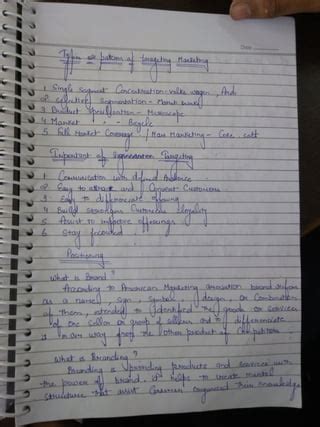 Date
Types or pattern of Targeting Marketing
1 Single Segment Concentration - volks wagen, Audi
2 Selective Segmentation -
3 Product Specification - Microscope
4 Market " " - Bicycle
5 Full Market Coverage / Mass Marketing - Coke,
Important of Segmentation Targeting
1 Communication with defined Audience
2 Easy to attract and Convert Customers
3 Easy to differenciate
4 Build Customer loyality
5 Assist to improve offerings
6 Stay focused
Positioning
What is Brand?
According to American Marketing
as a name, sign, symbol, design, or Combination
of them, intended to identified the goods or services
of one Seller or group of Sellers and to differenciate
in any way from the other product of Competitors
What is Branding?
Branding is providing products and services with
the power of Brand, it helps to create mental
structures that assist Consumer organised their knowledge